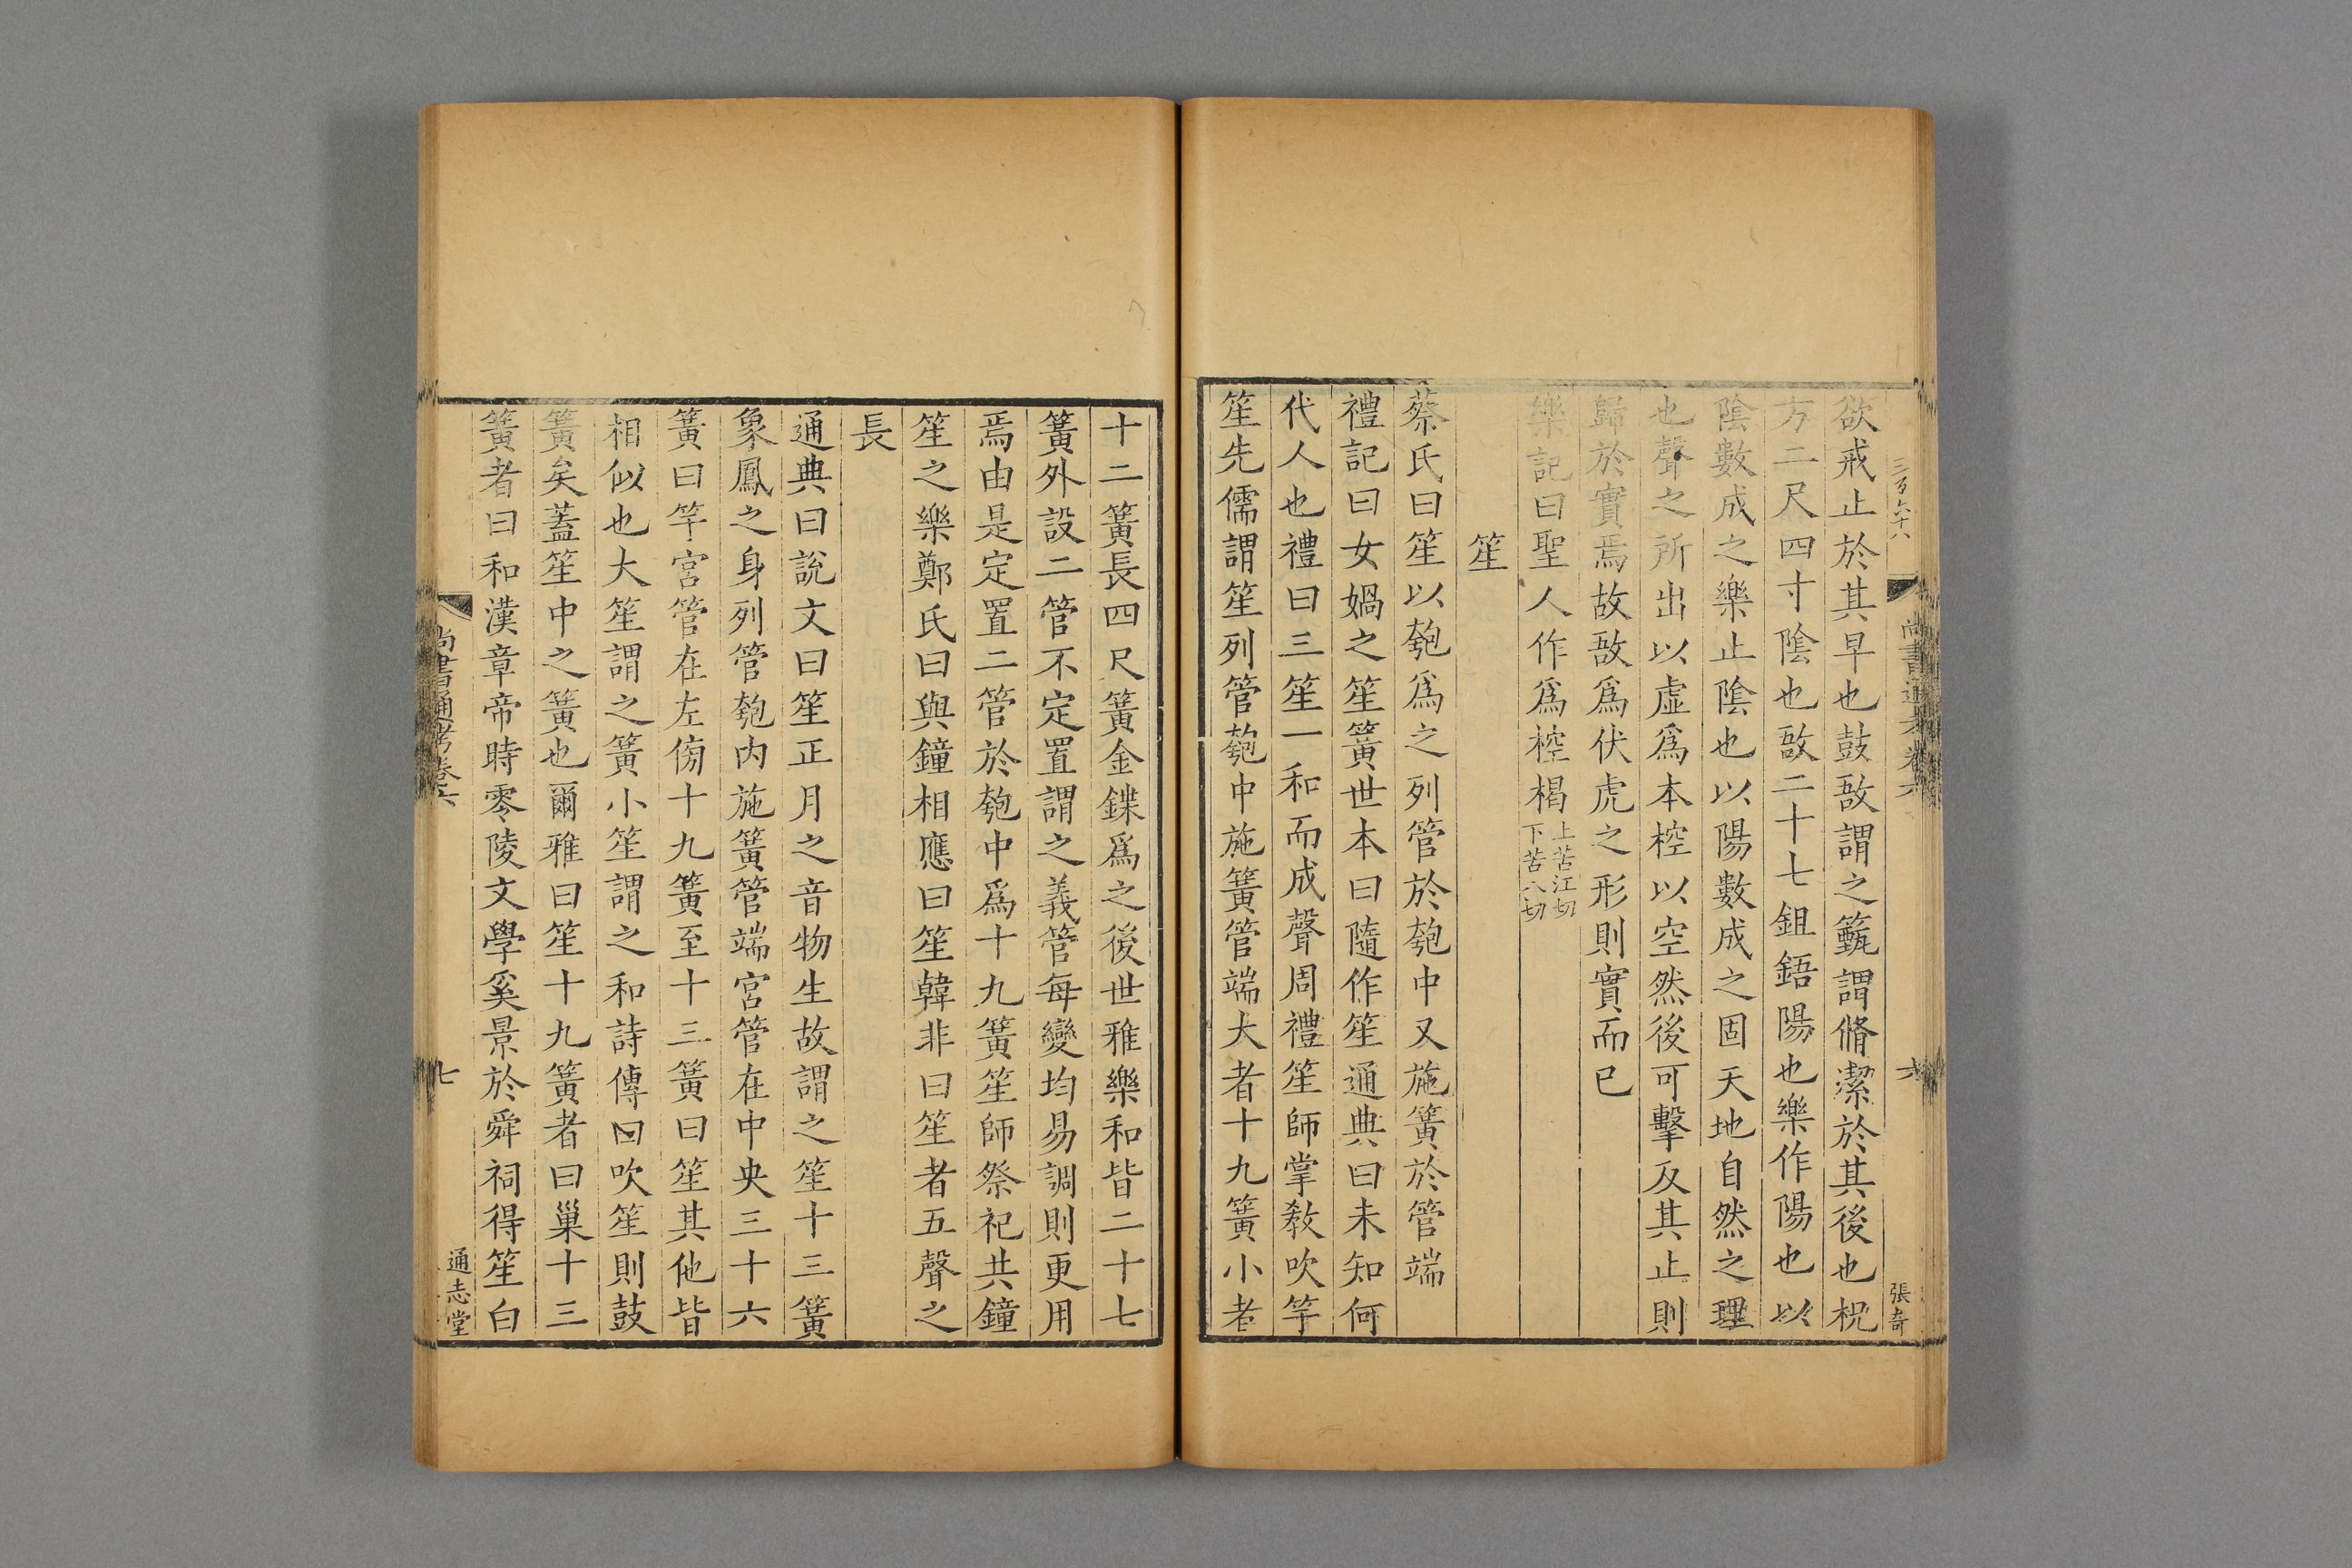 三百六十八
尚書通考卷六
六
張奇
欲戒止於其早也鼓敔謂之籈謂脩潔於其後也柷
方二尺四寸陰也敔二十七鉏鋙陽也樂作陽也以
陰數成之樂止陰也以陽數成之固天地自然之理
也聲之所出以虛爲本椌以空然後可擊及其止則
歸於實焉故敔爲伏虎之形則實而已
樂記曰聖人作爲椌楬
上苦江切
下苦八切
笙
蔡氏曰笙以匏爲之列管於匏中又施簧於管端
禮記曰女媧之笙簧世本曰隨作笙通典曰未知何
代人也禮曰三笙一和而成聲周禮笙師掌教吹竽
笙先儒謂笙列管匏中施簧管端大者十九簧小者
十二簧長四尺簧金鍱爲之後世雅樂和皆二十七
簧外設二管不定置謂之義管每變均易調則更用
焉由是定置二管於匏中爲十九簧笙師祭祀共鐘
笙之樂鄭氏曰與鐘相應曰笙韓非曰笙者五聲之
長
通典曰說文曰笙正月之音物生故謂之笙十三簧
象鳳之身列管匏内施簧管端宮管在中央三十六
簧曰竽宮管在左傍十九簧至十三簧曰笙其他皆
相似也大笙謂之簧小笙謂之和詩傳曰吹笙則鼓
簧矣蓋笙中之簧也爾雅曰笙十九簧者曰巢十三
簧者曰和漢章帝時零陵文學奚景於舜祠得笙白
尚書通考卷六
七
通志堂